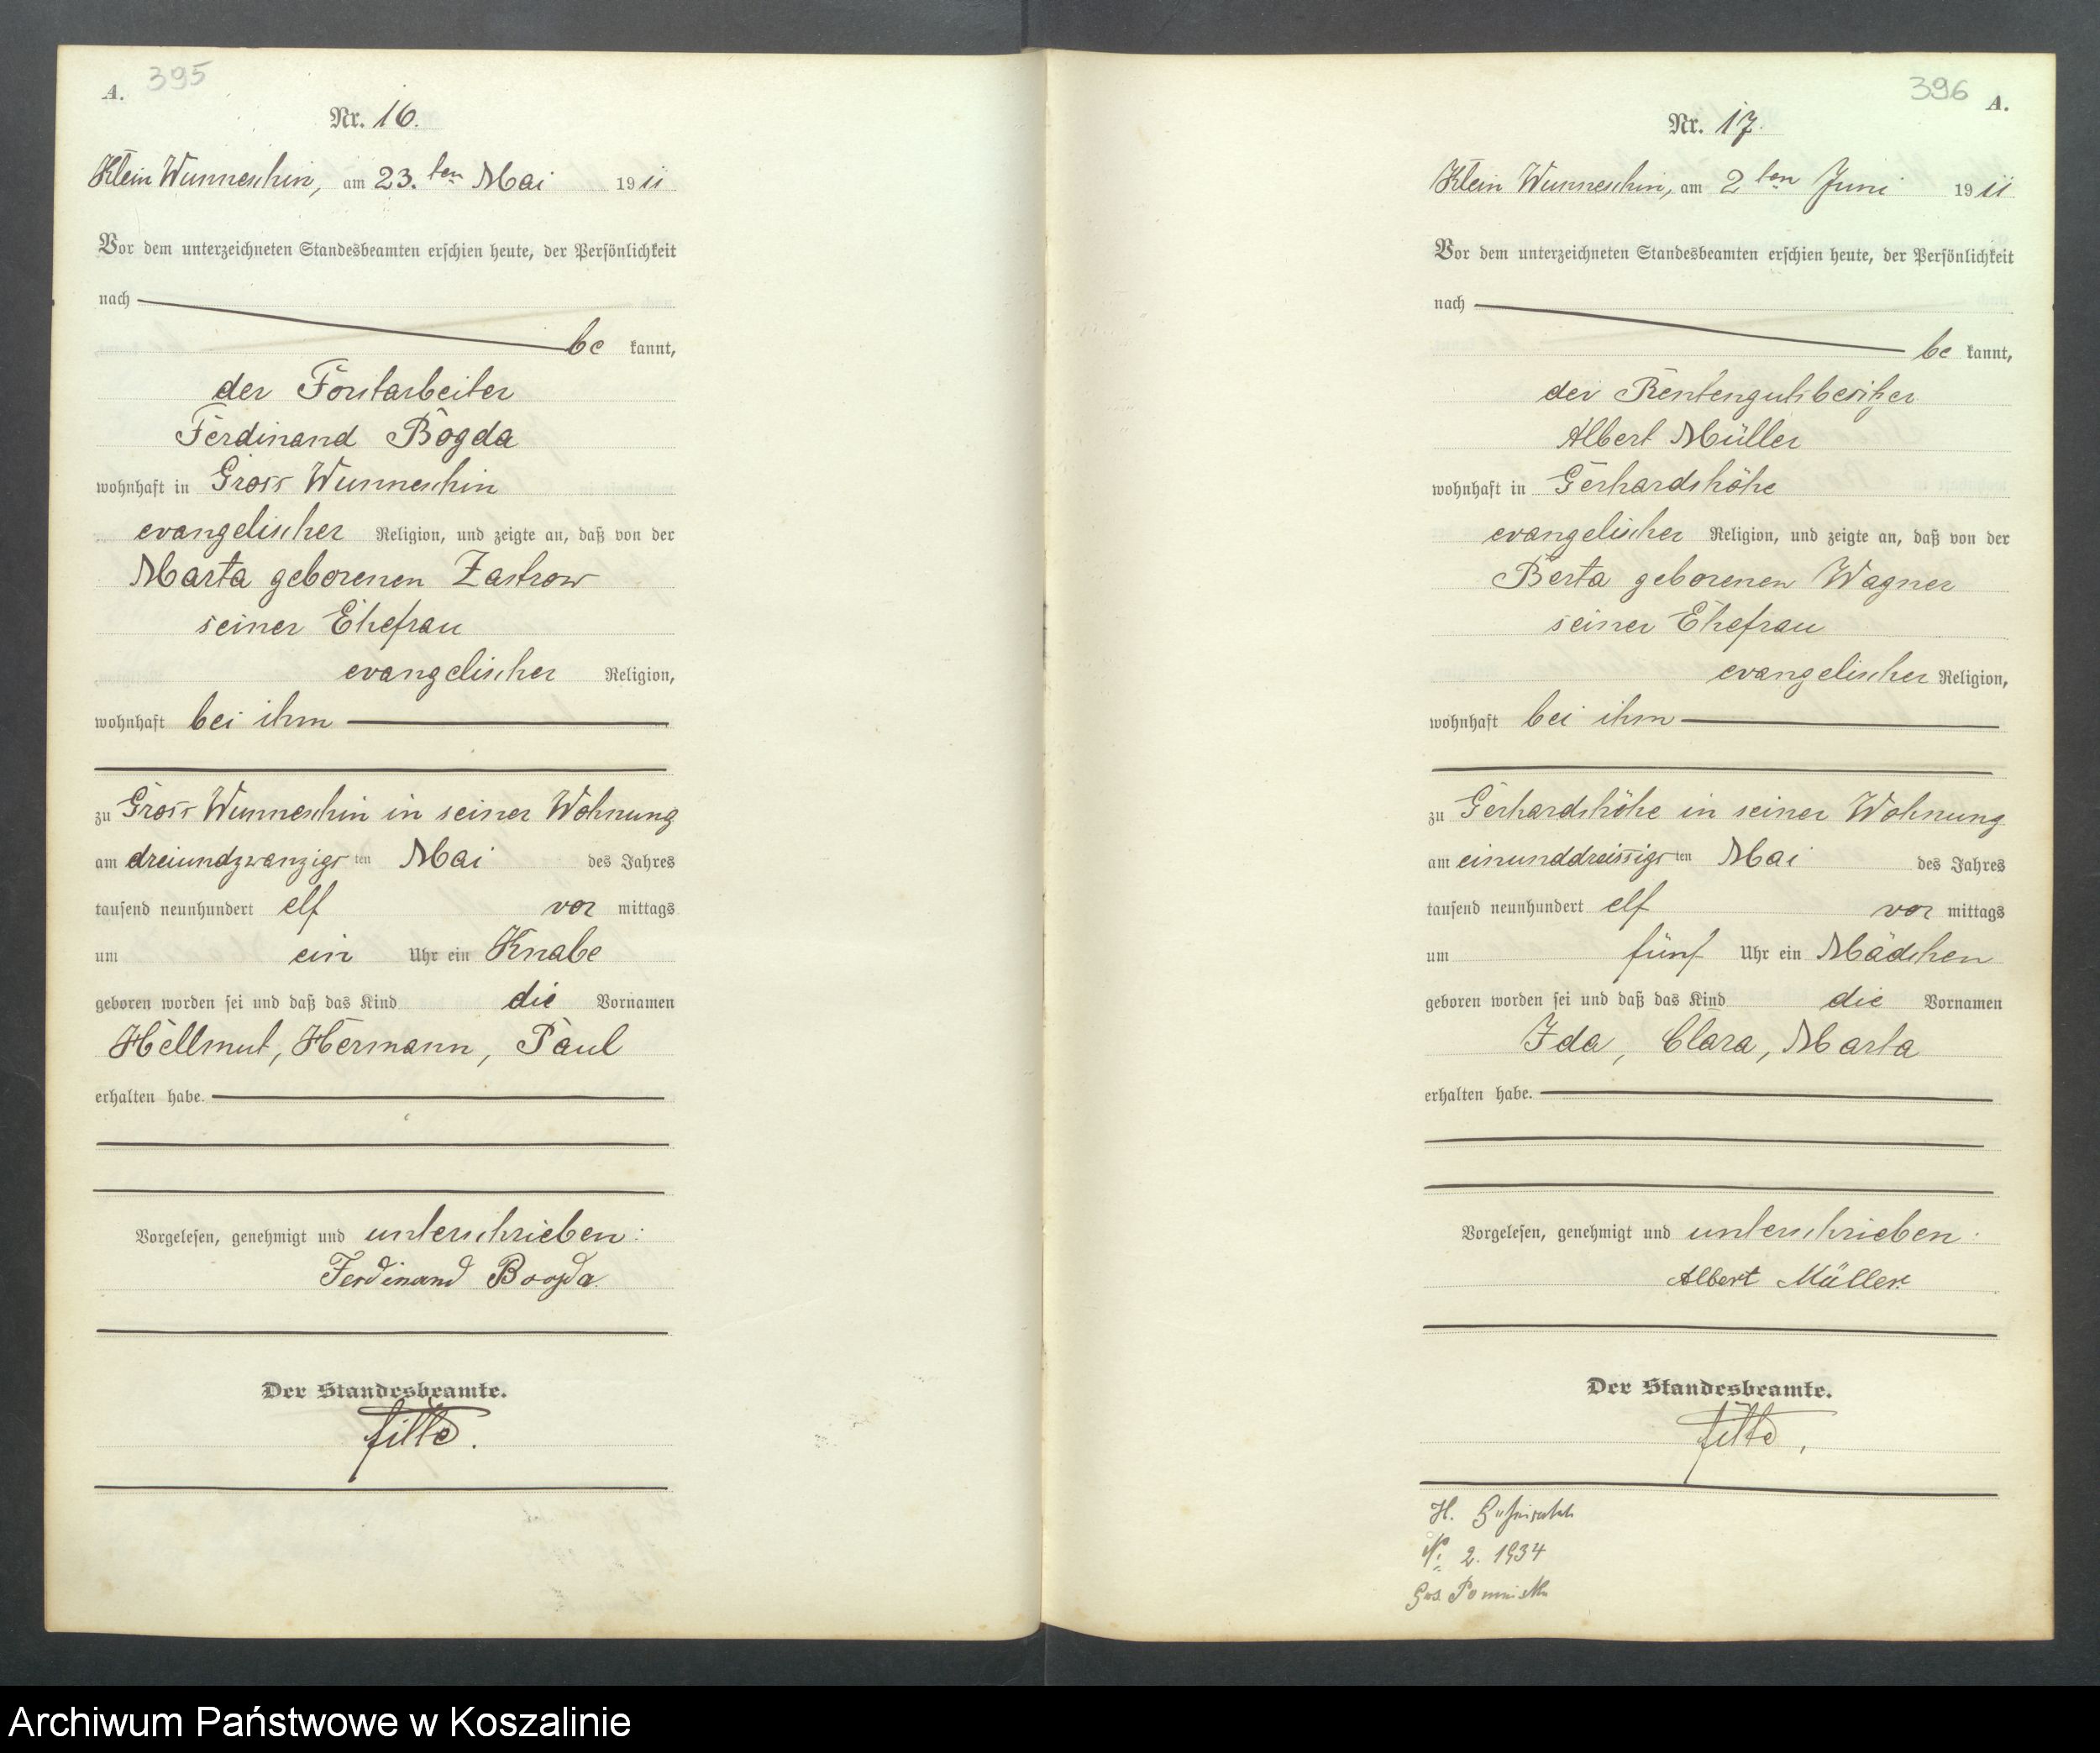 A. 395
Nr. 16.
Klein Wunneschin, am 23. ten Mai 1911
Vor dem unterzeichneten Standesbeamten erschien heute, der Persönlichkeit
nach
be kannt,
der Forstarbeiter
Ferdinand Bogda
wohnhaft in Gross Wunneschin
evangelischer Religion, und zeigte an, daß von der
Marta geborenen Zastrow
seiner Ehefrau
evangelischer Religion,
wohnhaft bei ihm
zu Gross Wunneschin in seiner Wohnung
am dreiundzwanzigs ten Mai des Jahres
tausend neunhundert elf vor mittags
um ein Uhr ein Knabe
geboren worden sei und daß das Kind die Vornamen
Hellmut, Hermann, Paul
erhalten habe.
Vorgelesen, genehmigt und unterschrieben:
Ferdinand Bogda.
Der Standesbeamte.
396 A.
Nr. 17.
Klein Wunneschin, am 2 ten Juni 1911
Vor dem unterzeichneten Standesbeamten erschien heute, der Persönlichkeit
nach
be kannt,
der Rentengutsbesitzer
Albert Müller
wohnhaft in Gerhardshöhe
evangelischer Religion, und zeigte an, daß von der
Berta geborenen Wagner
seiner Ehefrau
evangelischer Religion,
wohnhaft bei ihm
zu Gerhardshöhe in seiner Wohnung
am einunddreissigs ten Mai des Jahres
tausend neunhundert elf vor mittags
um fünf Uhr ein Mädchen
geboren worden sei und daß das Kind die Vornamen
Ida, Clara, Marta
erhalten habe.
Vorgelesen, genehmigt und unterschrieben:
Albert Müller.
Der Standesbeamte.
H.
№ 2. 1934
Archiwum Państwowe w Koszalinie